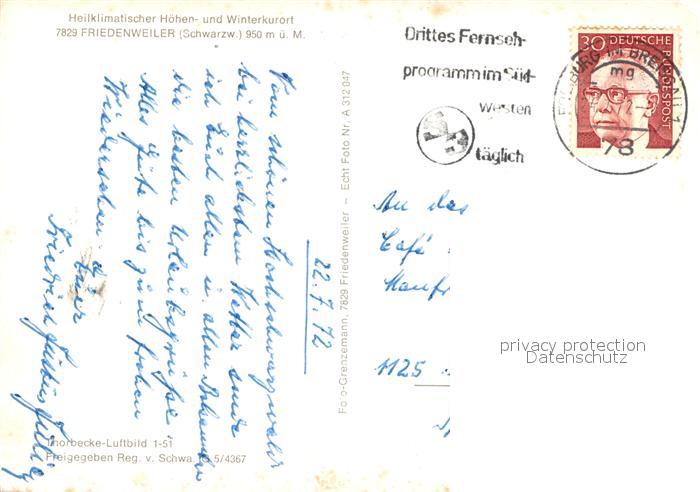 Heilklimatischer Höhen- und Winterkurort
7829 FRIEDENWEILER (Schwarzw.) 950 m ü. M.
Vom schönen Hochschwarzwald
bei herrlichstem Wetter sende
ich Euch allen u. allen Bekannten
die besten Urlaubsgrüße.
Alles Gute bis zum frohen
Wiedersehen
Euer
Friedrich
22.7.72
Thorbecke-Luftbild 1-51
Freigegeben Reg. v. Schwa. 5/4367
Foto-Grenzemann, 7829 Friedenweiler – Echt Foto Nr. A 312 047
Drittes Fernseh-
programm im Süd-
westen
täglich
30 DEUTSCHE
BUNDESPOST
FREIBURG IM BREISGAU 1
mg
78
An das
Café
Manfr
1125
privacy protection
Datenschutz